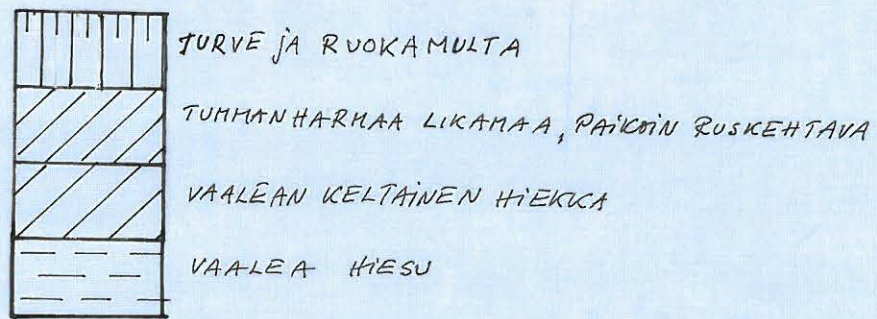 TURVE JA RUOKAMULTA
TUMMANHARMAA LIKAMAA, PAIKOIN RUSKEHTAVA
VAALEAN KELTAINEN HIEKKA
VAALEA HIESU